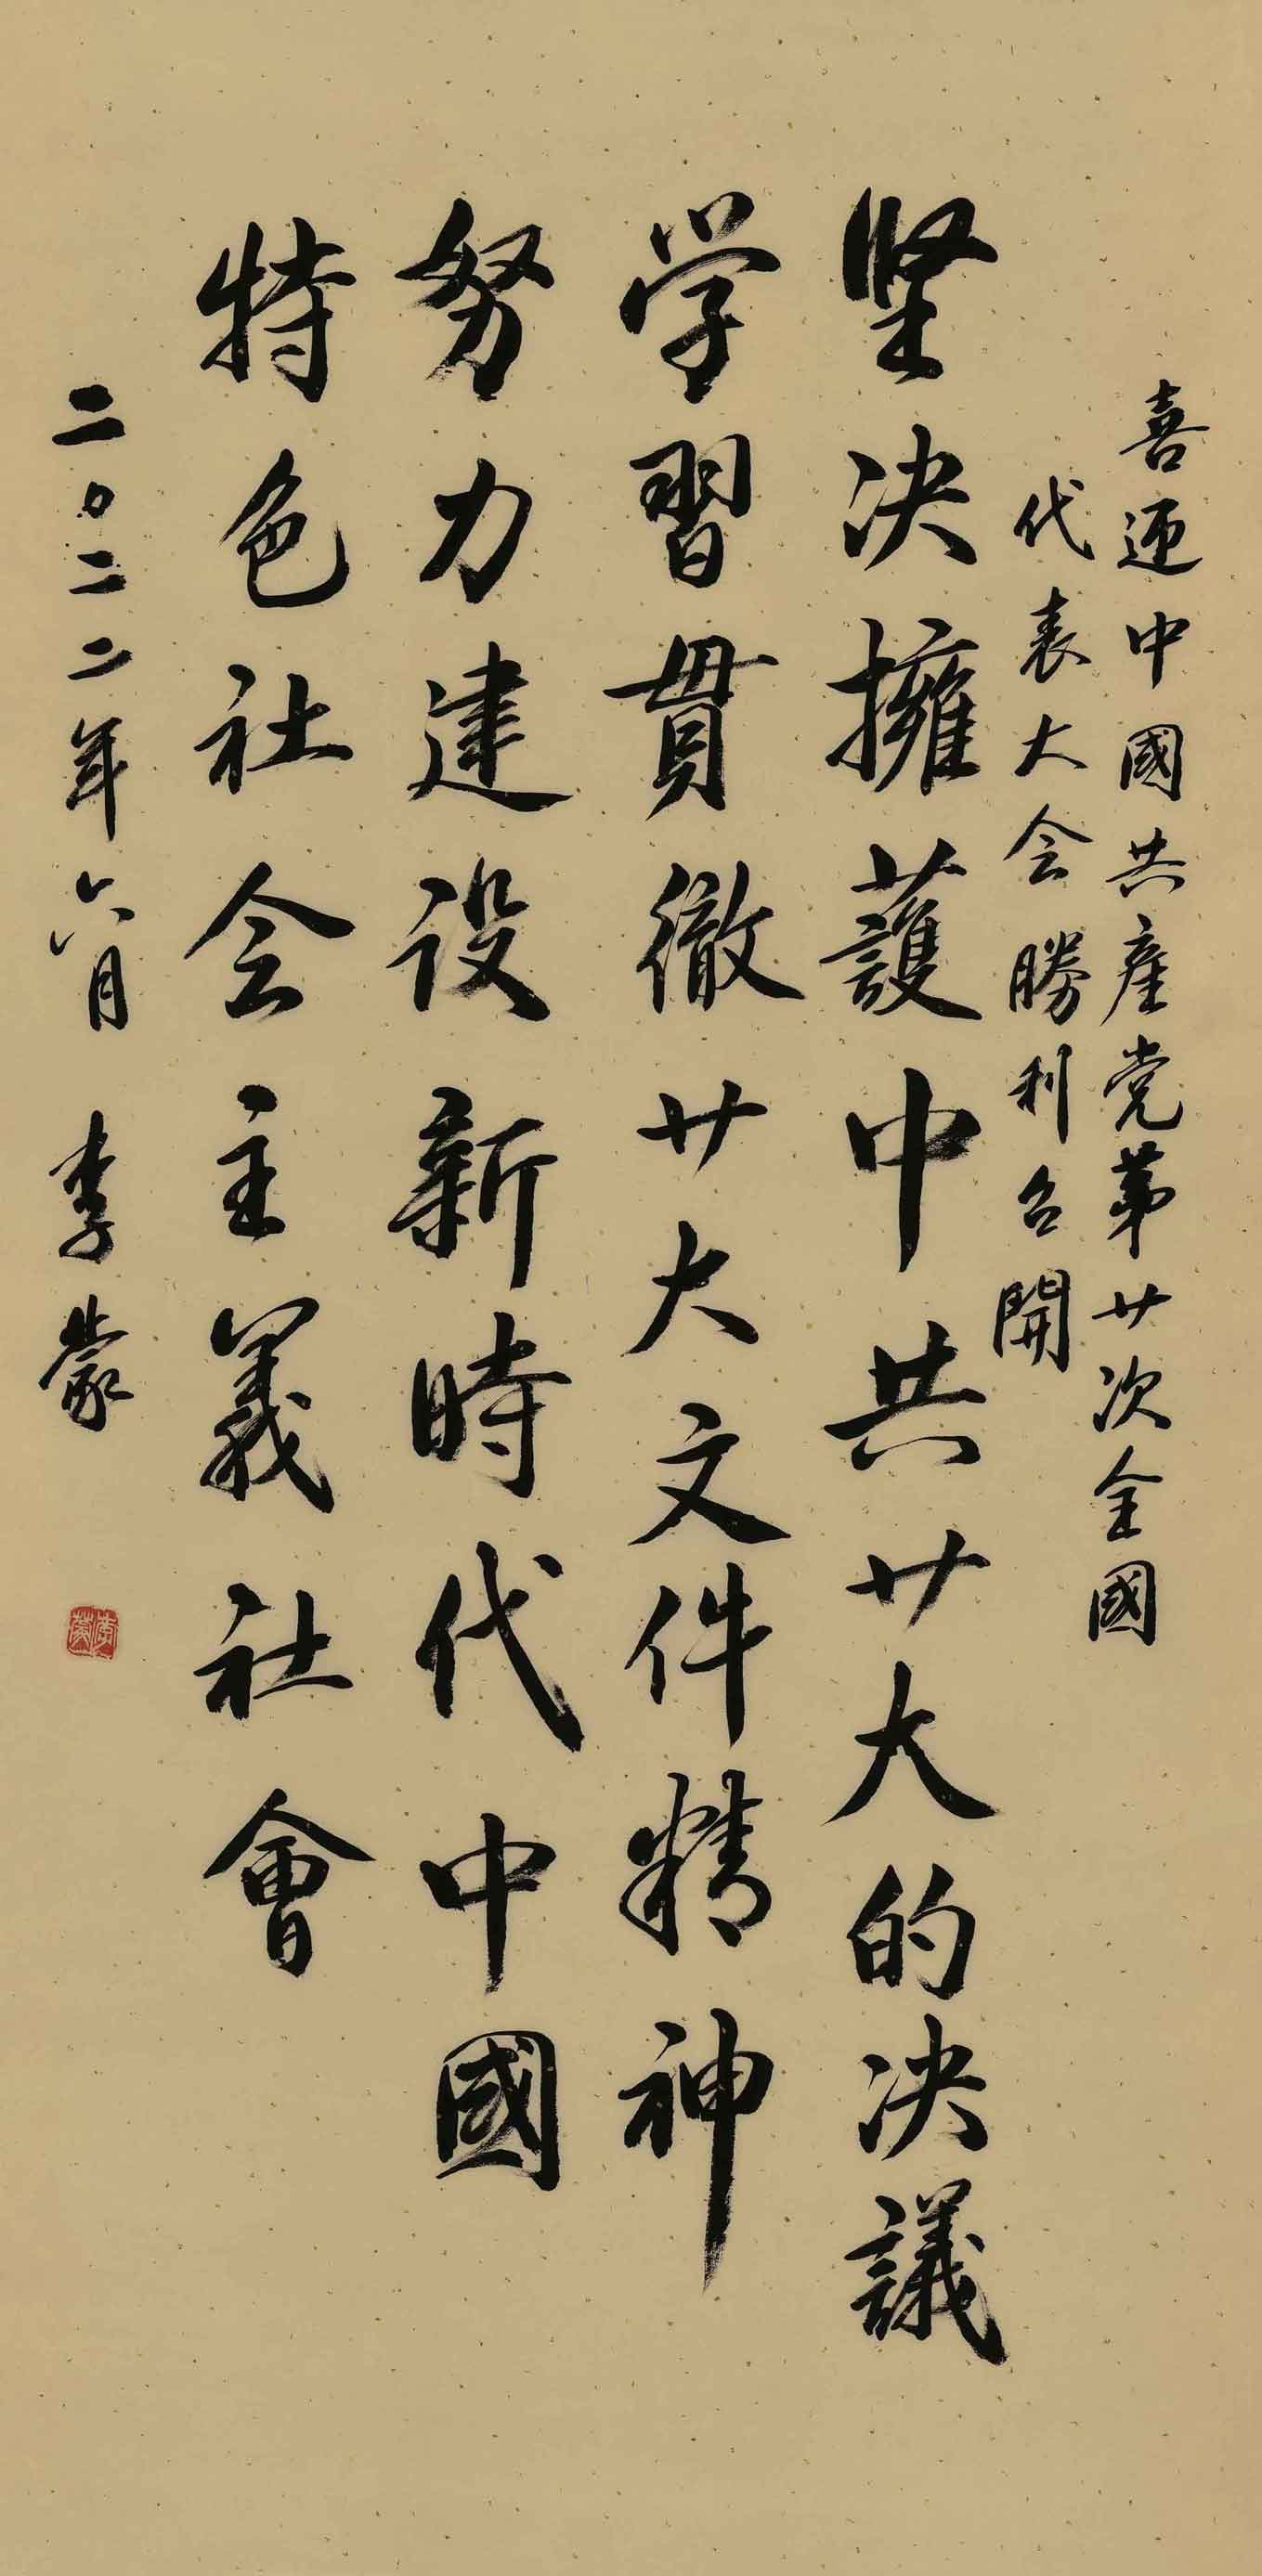 喜迎中國共産党第廿次全國
代表大会勝利召開
坚决擁護中共廿大的决議
学習貫徹廿大文件精神
努力建设新時代中國
特色社会主義社會
二〇二二年六月 李蒙
李蒙